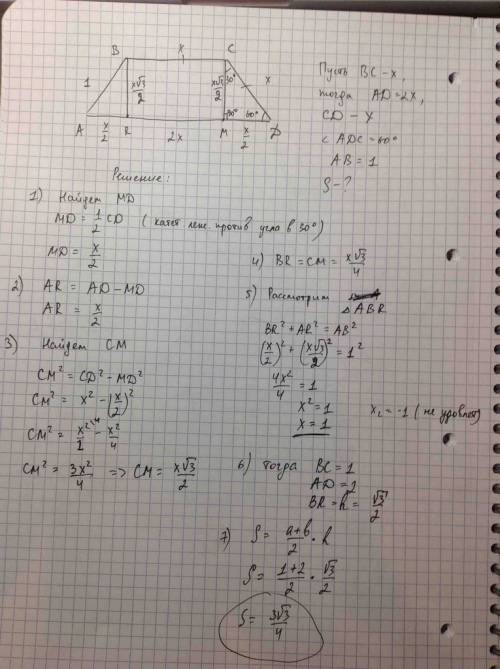 B x C
1 x√3/2 x√3/2 30° x
90° 60°
A x/2 R 2x M x/2 D
Пусть BC - x,
тогда AD = 2x,
CD - x
< ADC = 60°
AB = 1
S - ?
Решение:
1) Найдем MD
MD = 1/2 CD ( катет леж. против угла в 30°)
MD = x/2
2) AR = AD - MD
AR = x/2
3) Найдем CM
CM² = CD² - MD²
CM² = x² - (x/2)²
CM² = x²\4/1 - x²/4
CM² = 3x²/4 => CM = x√3/2
4) BR = CM = x√3/4
5) Рассмотрим
△ ABR
BR² + AR² = AB²
(x/2)² + (x√3/2)² = 1²
4x²/4 = 1
x² = 1
x = 1 x₂ = -1 ( не удовлет)
6) Тогда BC = 1
AD = 2
BR = h = √3/2
7) S = a+b/2 · h
S = 1+2/2 · √3/2
S = 3√3/4